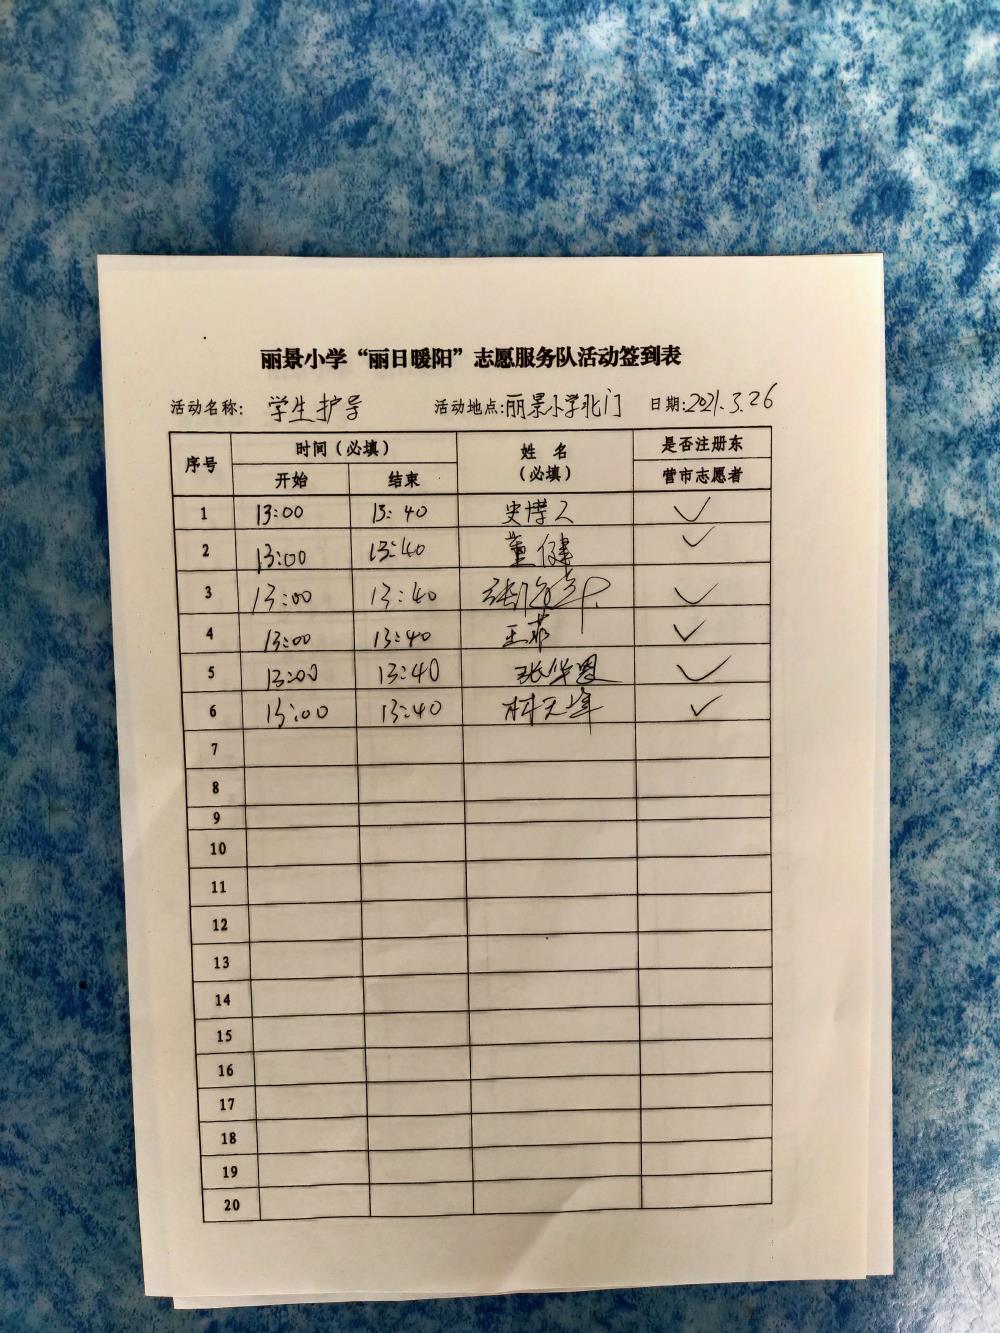 丽景小学“丽日暖阳”志愿服务队活动签到表
活动名称: 学生护导 活动地点:丽景小学北门 日期:2021.3.26
序号 时间(必填) 姓 名 (必填) 是否注册东营市志愿者
开始 结束
1 13:00 13:40 史博人 ✓
2 13:00 13:40 董健 ✓
3 13:00 13:40 ✓
4 13:00 13:40 王菲 ✓
5 13:00 13:40 张华 ✓
6 13:00 13:40 ✓
7
8
9
10
11
12
13
14
15
16
17
18
19
20